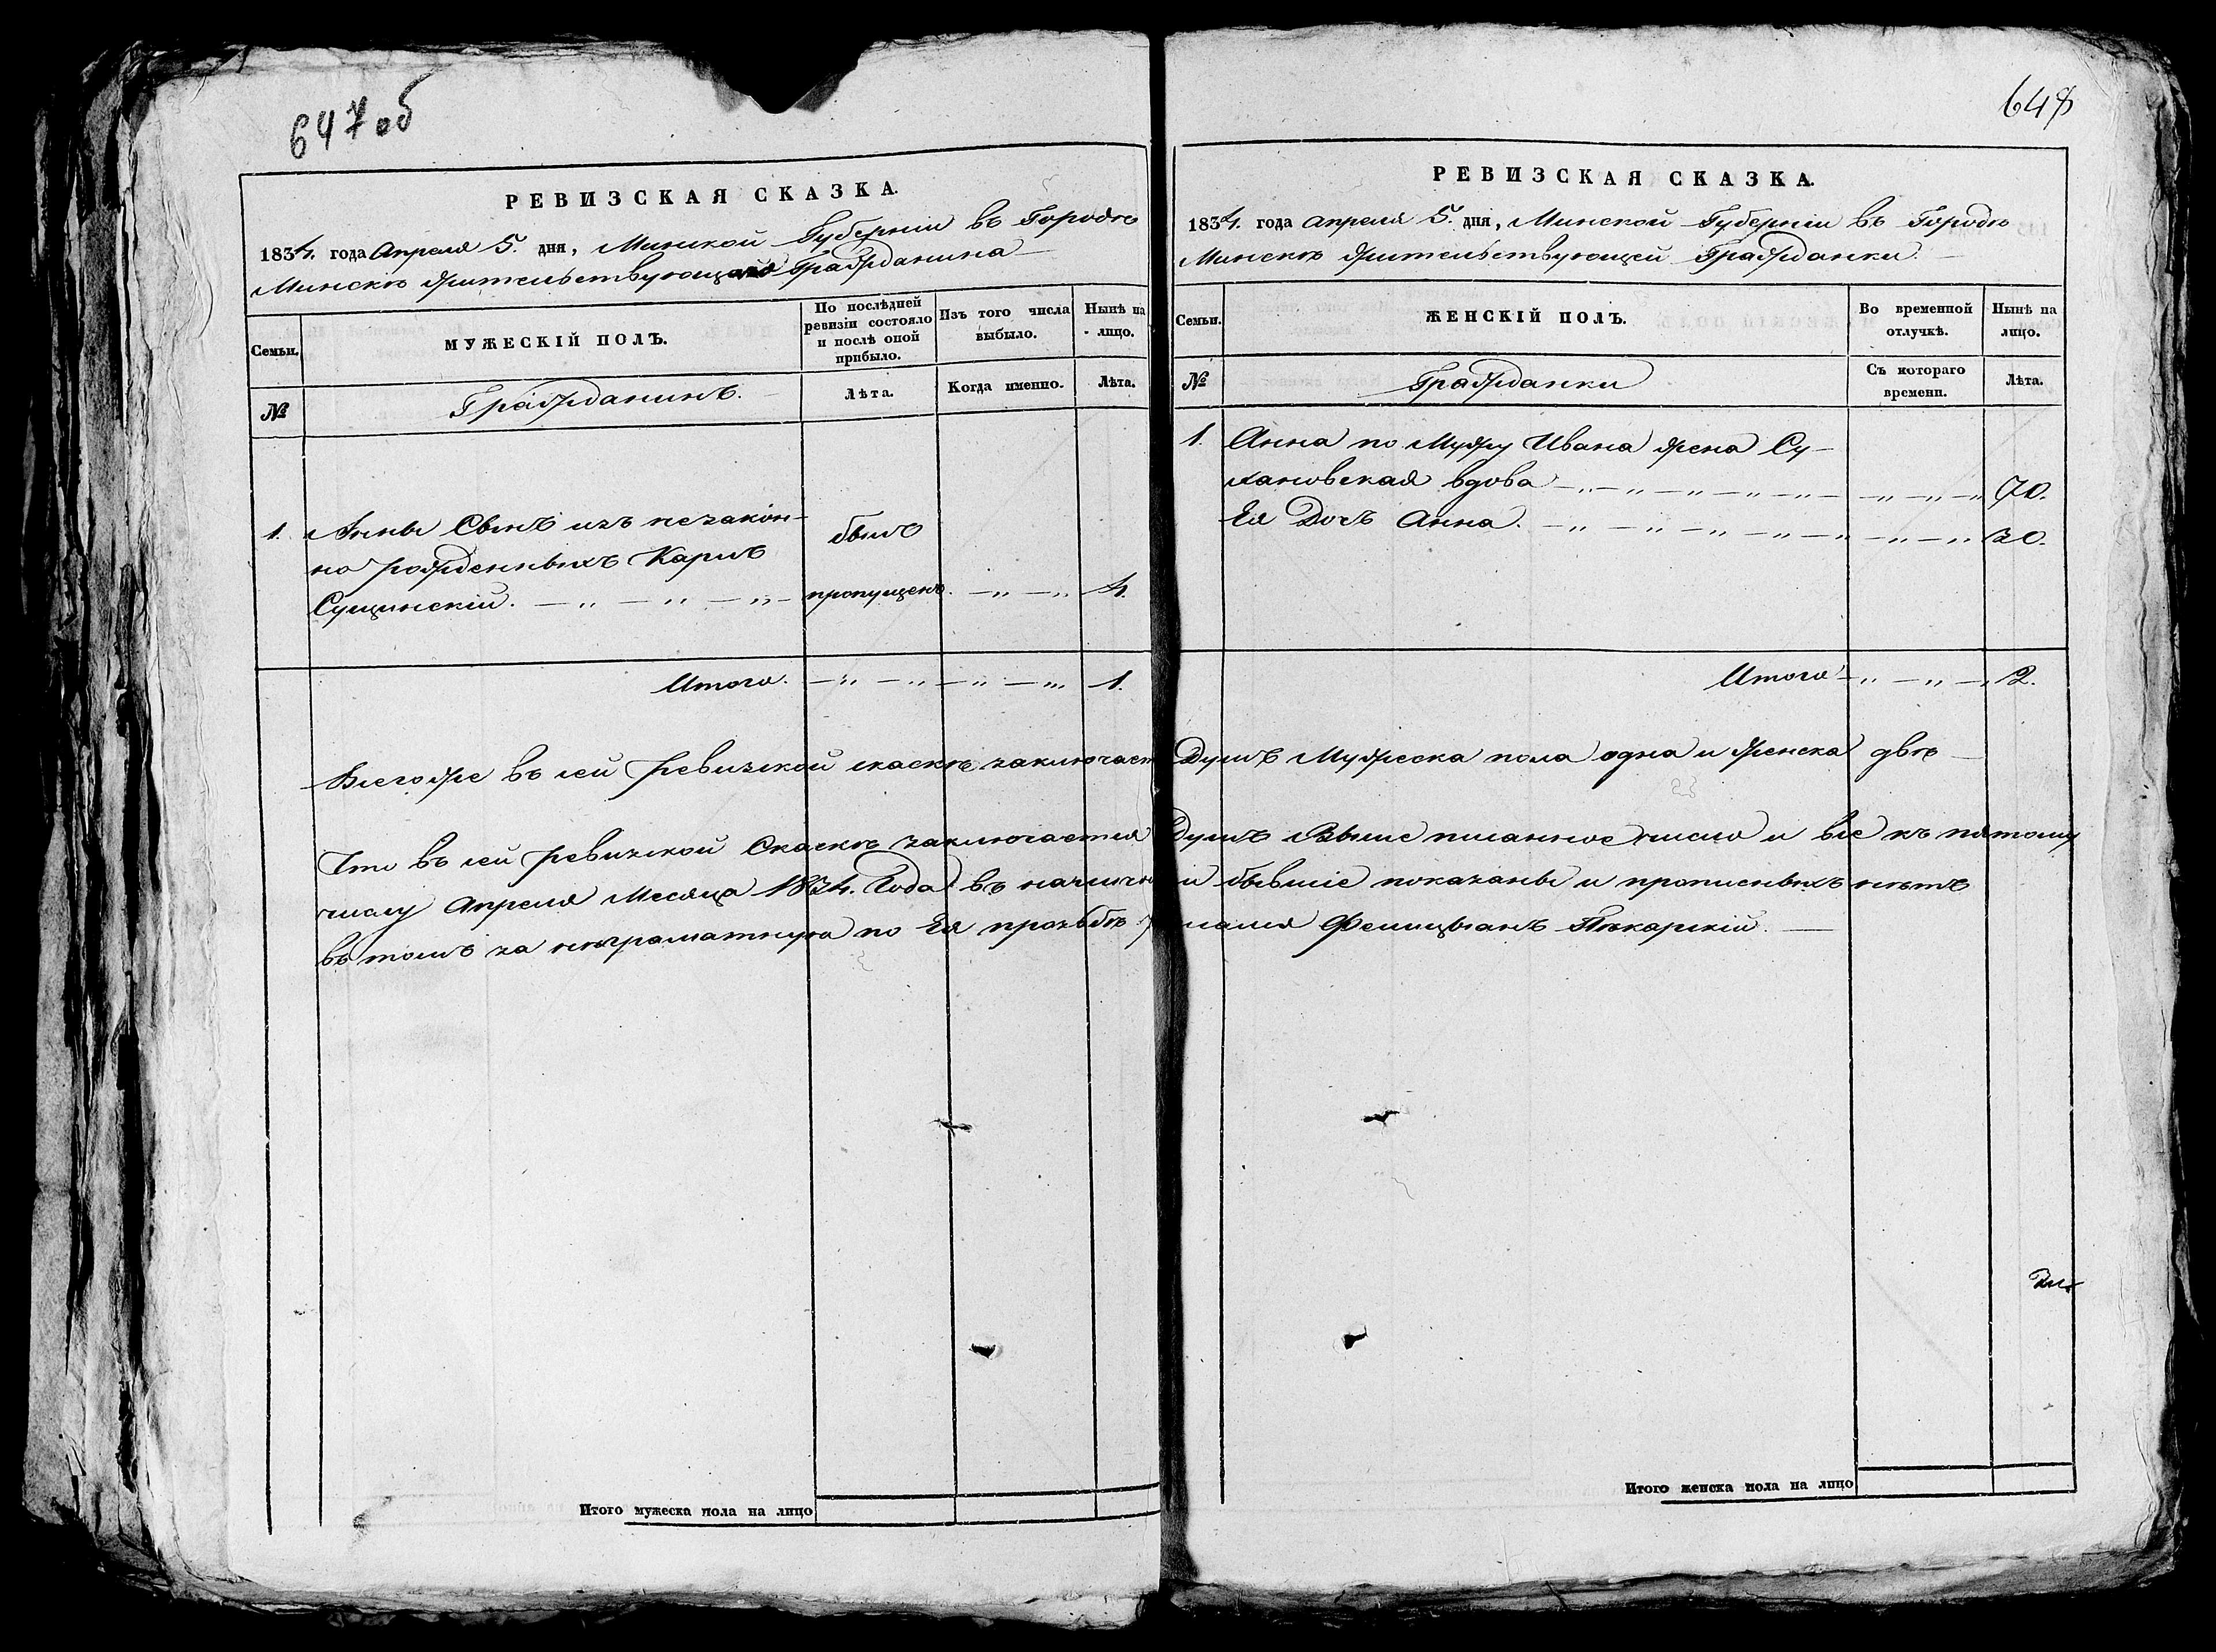 647 об
РЕВИЗСКАЯ СКАЗКА.
1834. года Апреля 5. дня, Минской Губерніи въ Городѣ
Минскѣ жительствующаго Гражданина
Семьи.
МУЖЕСКІЙ ПОЛЪ.
По послѣдней ревизіи состояло и послѣ оной прибыло.
Изъ того числа выбыло.
Нынѣ на лицо.
№
Гражданинъ.
Лѣта.
Когда именно.
Лѣта.
1. Анны Сынъ изъ незакон-
но рожденныхъ Карлъ
былъ
Сущинскій. — „ — „ — „ — пропущенъ. — „ — „ 4.
Итого. — „ — „ — „ — „ 1.
648
РЕВИЗСКАЯ СКАЗКА.
1834. года апреля 5. дня, Минской Губерніи въ Городѣ
Минскѣ жительствующей Гражданки.
Семьи.
ЖЕНСКІЙ ПОЛЪ.
Во временной отлучкѣ.
Нынѣ на лицо.
№
Гражданки
Съ котораго времени.
Лѣта.
1. Анна по Мужу Ивана жена Су-
вдова — „ — „ — „ — „ — „ — „ 70.
Ея Дочь Анна. — „ — „ — „ — „ — „ — „ 30.
Итого — „ — „ — „ 2.
Всегоже въ сей ревизской скаскѣ заключает Душъ Мужеска пола одна и женска двѣ
Что въ сей ревизской Скаскѣ заключается Душъ Выше писанное число и все къ пятому
числу Апреля Месяца 1834. Года въ наличн и бывшіе показаны и прописныхъ нетъ
въ томъ за неграматную по Ея прозьбѣ Фелицыанъ Пѣкарскій.
Итого мужеска пола на лицо
Итого женска пола на лицо